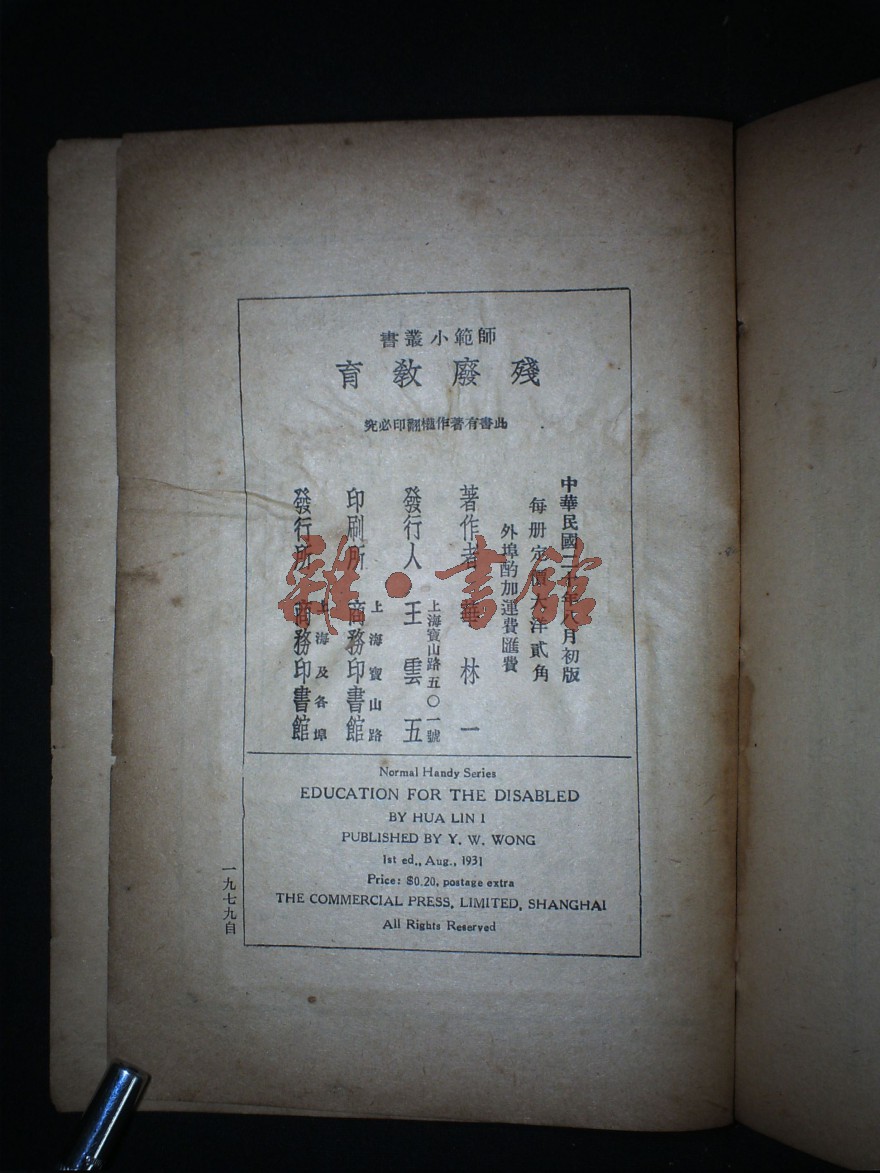 師範小叢書
殘廢教育
此書有著作權翻印必究
中華民國二十年八月初版
每册定價大洋貳角
外埠酌加運費匯費
著作者 華林一
上海寶山路五〇一號
發行人 王雲五
上海寶山路
印刷所 商務印書館
上海及各埠
發行所 商務印書館
Normal Handy Series
EDUCATION FOR THE DISABLED
BY HUA LIN I
PUBLISHED BY Y. W. WONG
1st ed., Aug., 1931
Price: $0.20, postage extra
THE COMMERCIAL PRESS, LIMITED, SHANGHAI
All Rights Reserved
一九七九自
雜·書館